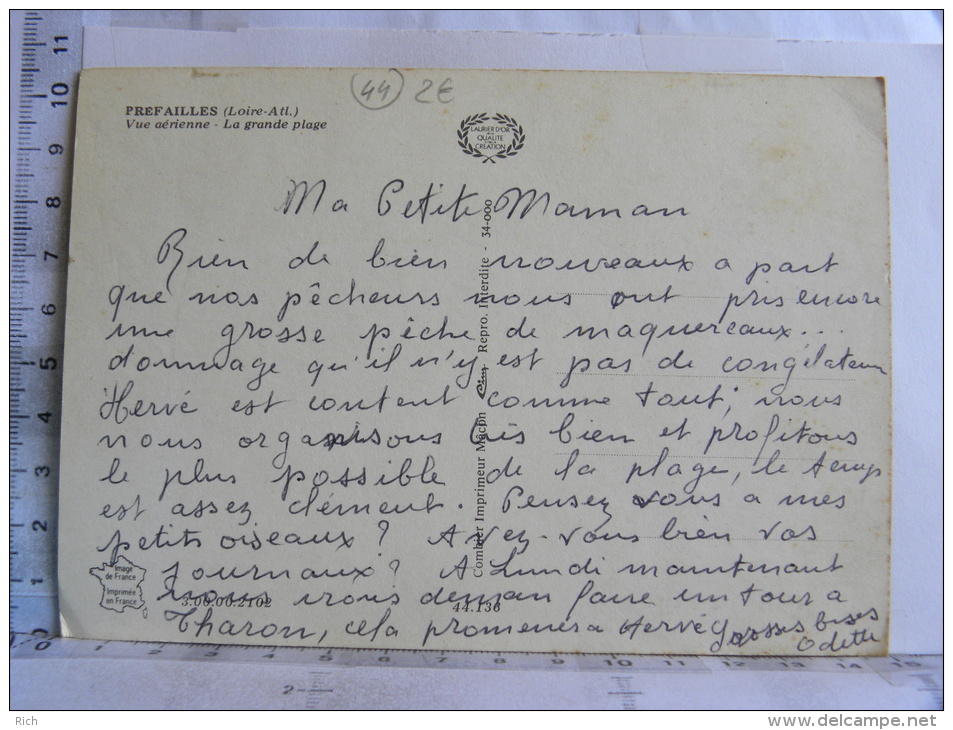 44 2€
PREFAILLES (Loire-Atl.)
Vue aérienne - La grande plage
LAURIER D'OR
DE LA
QUALITÉ
CRÉATION
Ma Petite Maman
Rien de bien nouveaux a part
que nos pêcheurs nous ont pris encore
une grosse pêche de maquereaux...
dommage qu'il n'y est pas de congélateur
Hervé est content comme tout, nous
nous organisons très bien et profitons
le plus possible de la plage, le temps
est assez clément. Pensez vous a mes
petits oiseaux ? Avez-vous bien vos
journaux ? A Lundi maintenant
nous irons demain faire un tour a
Tharon, cela promenera Hervé grosses bises
Odette
Combier Imprimeur Mâcon Cim Repro. Interdite - 34-000
Image
de France
Imprimée
en France
3.00.00.2102
44.136
0 1 2 3 4 5 6 7 8 9 10 11
0 1 2 3 4 5 6 7 8 9 10 11 12 13 14 15
2
Rich
www.delcampe.net